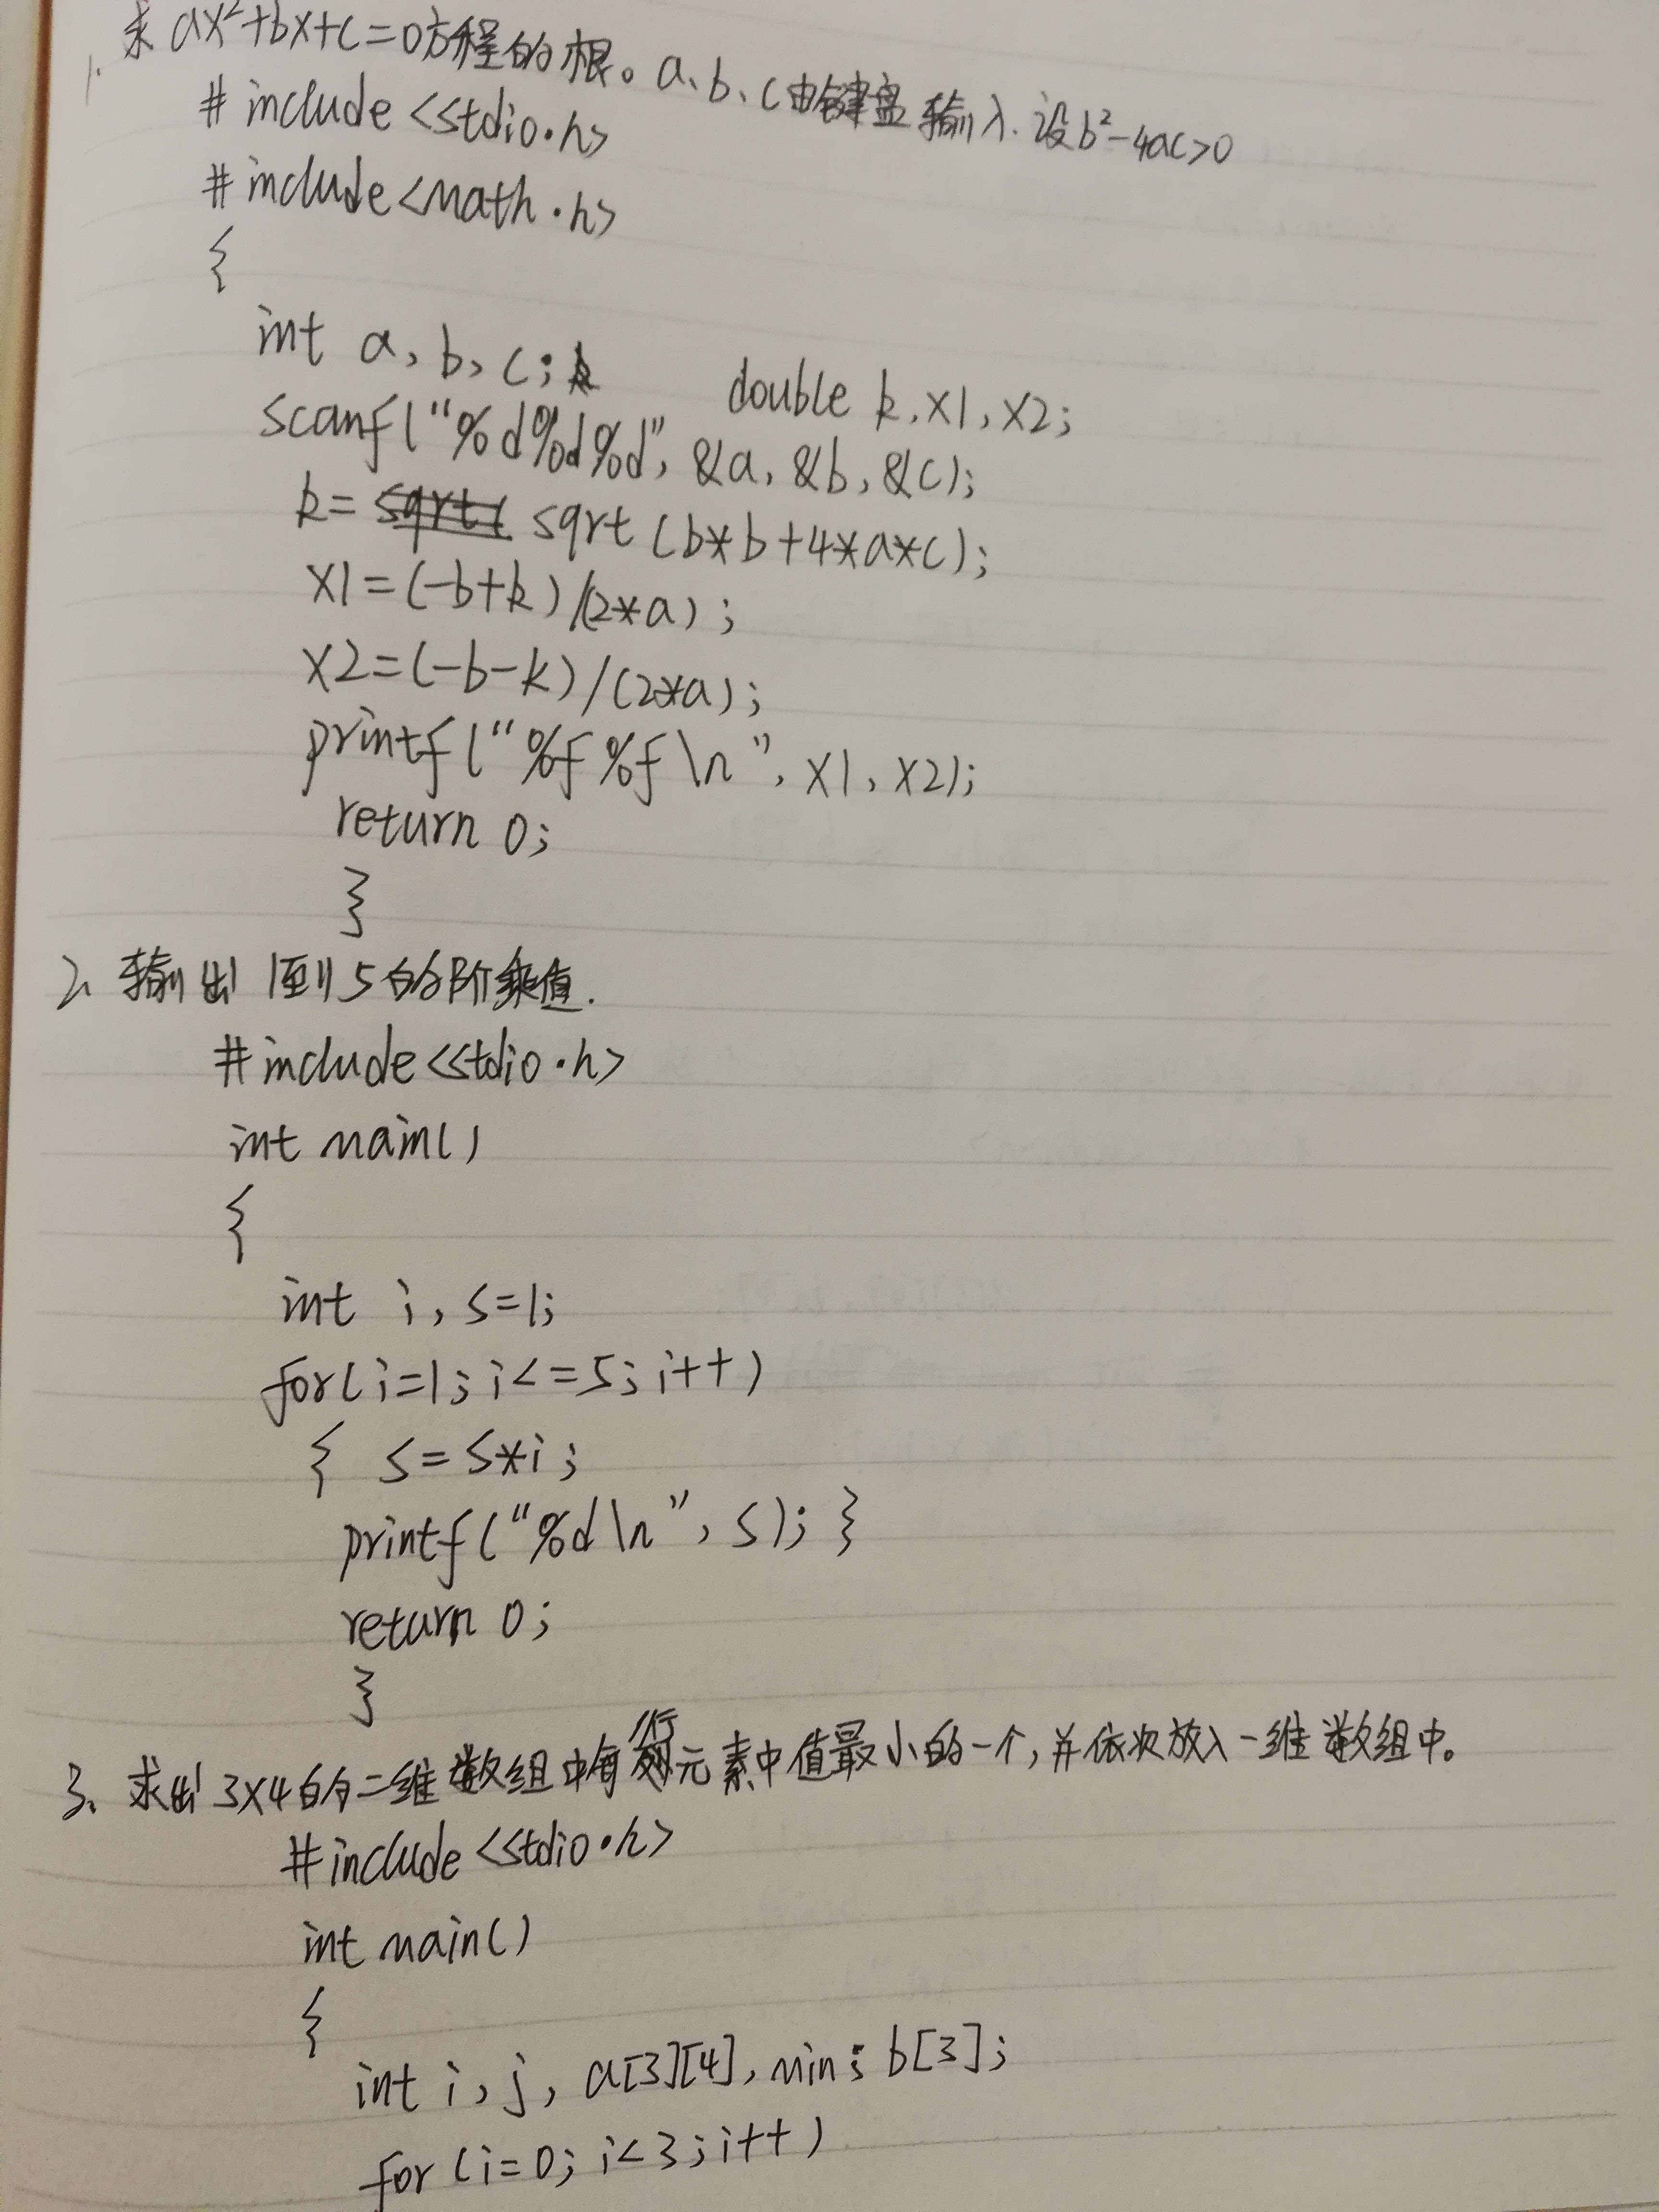 1. 求ax²+bx+c=0方程的根。a、b、c由键盘输入.设b²-4ac>0
#include<stdio.h>
#include<math.h>
{
int a,b,c; double k,x1,x2;
scanf("%d%d%d",&a,&b,&c);
k= sqrt(b*b+4*a*c);
x1=(-b+k)/(2*a);
x2=(-b-k)/(2*a);
printf("%f%f\n",x1,x2);
return 0;
}
2、输出1到5的阶乘值.
#include<stdio.h>
int main()
{
int i,s=1;
for(i=1;i<=5;i++)
{ s=s*i;
printf("%d\n",s);}
return 0;
}
3、求出3×4的二维数组中每行元素中值最小的一个,并依次放入一维数组中。
#include<stdio.h>
int main()
{
int i,j,a[3][4],min; b[3];
for(i=0;i<3;i++)